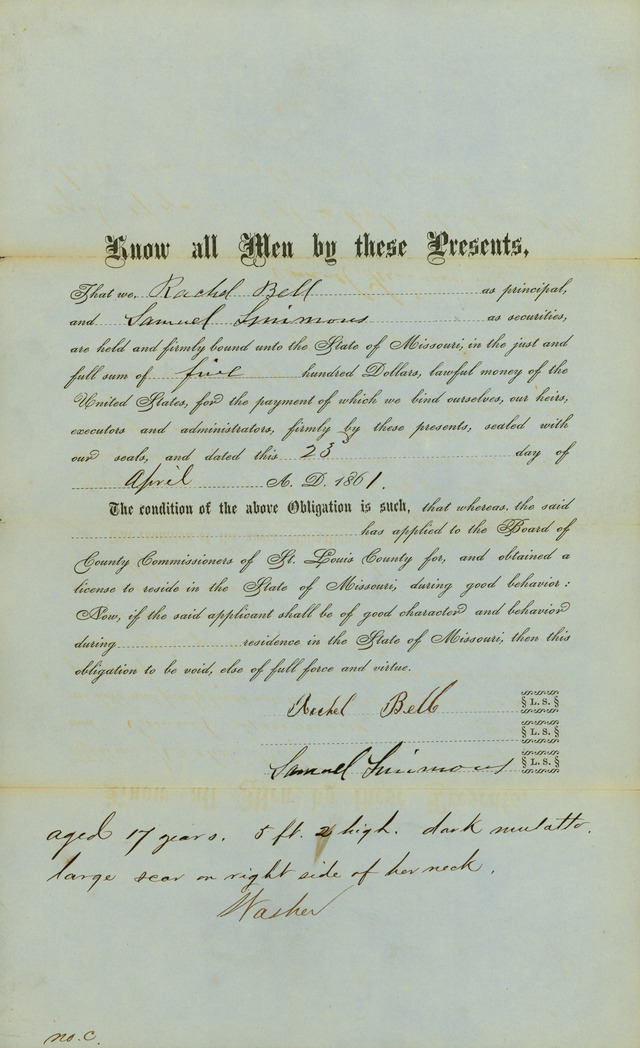 Know all Men by these Presents,
That we, Rachel Bell as principal,
and Samuel Simmons as securities,
are held and firmly bound unto the State of Missouri, in the just and
full sum of five hundred Dollars, lawful money of the
United States, for the payment of which we bind ourselves, our heirs,
executors and administrators, firmly by these presents, sealed with
our seals, and dated this 23 day of
April A. D. 1861.
The condition of the above Obligation is such, that whereas, the said
has applied to the Board of
County Commissioners of St. Louis County for, and obtained a
license to reside in the State of Missouri, during good behavior:
Now, if the said applicant shall be of good character and behavior
during residence in the State of Missouri, then this
obligation to be void, else of full force and virtue.
Rachel Bell § L. S. §
§ L. S. §
Samuel Simmons § L. S. §
aged 17 years. 5 ft. 2 high. dark mulatto.
large scar on right side of her neck.
Washer
no. C.